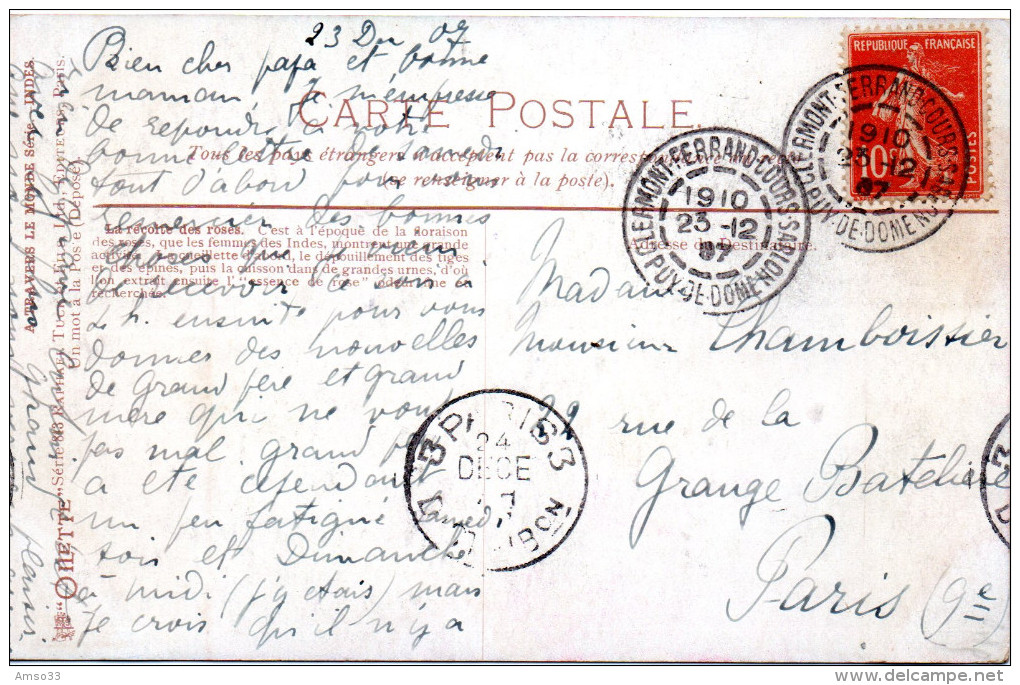 23 Dec 07
Bien cher papa et bonne
maman Je m'empresse
de repondre à votre
bonne lettre de samedi
tout d'abord pour vous
remercier des bonnes
choses
recevoir ce soir à
4 h. ensuite pour vous
donner des nouvelles
de Grand père et grand
mère qui ne vont
pas mal grand père
a été cependant
un peu fatigué samedi
soir et Dimanche
à midi (j'y étais) mais
je crois qu'il n'y a
CARTE POSTALE.
Tous les pays étrangers n'acceptent pas la correspondance
(se renseigner à la poste).
La récolte des roses. C'est à l'époque de la floraison
des roses, que les femmes des Indes, montrent une grande
activité. La cueillette d'abord, le dépouillement des tiges
et des épines, puis la cuisson dans de grandes urnes, d'où
l'on extrait ensuite l'"essence de rose"
recherchée.
A TRAVERS LE MONDE Série INDES.
"OILETTE" Série 68 RAPHAEL TUCK ET FILS, Ltd, EDITEURS, PARIS.
Un mot à la Poste (Déposé)
grand plaisir
REPUBLIQUE FRANÇAISE
10
POSTES
CLERMONT-FERRAND-COURS-SABLON
1910
23-12
07
PUY-DE-DOME
CLERMONT-FERRAND-COURS-SABLON
1910
23-12
07
PUY-DE-DOME
Adresse du Destinataire.
Madame
Monsieur Chamboissier
22 rue de la
Grange Batelière
Paris (9e)
PARIS
24
DECE
07